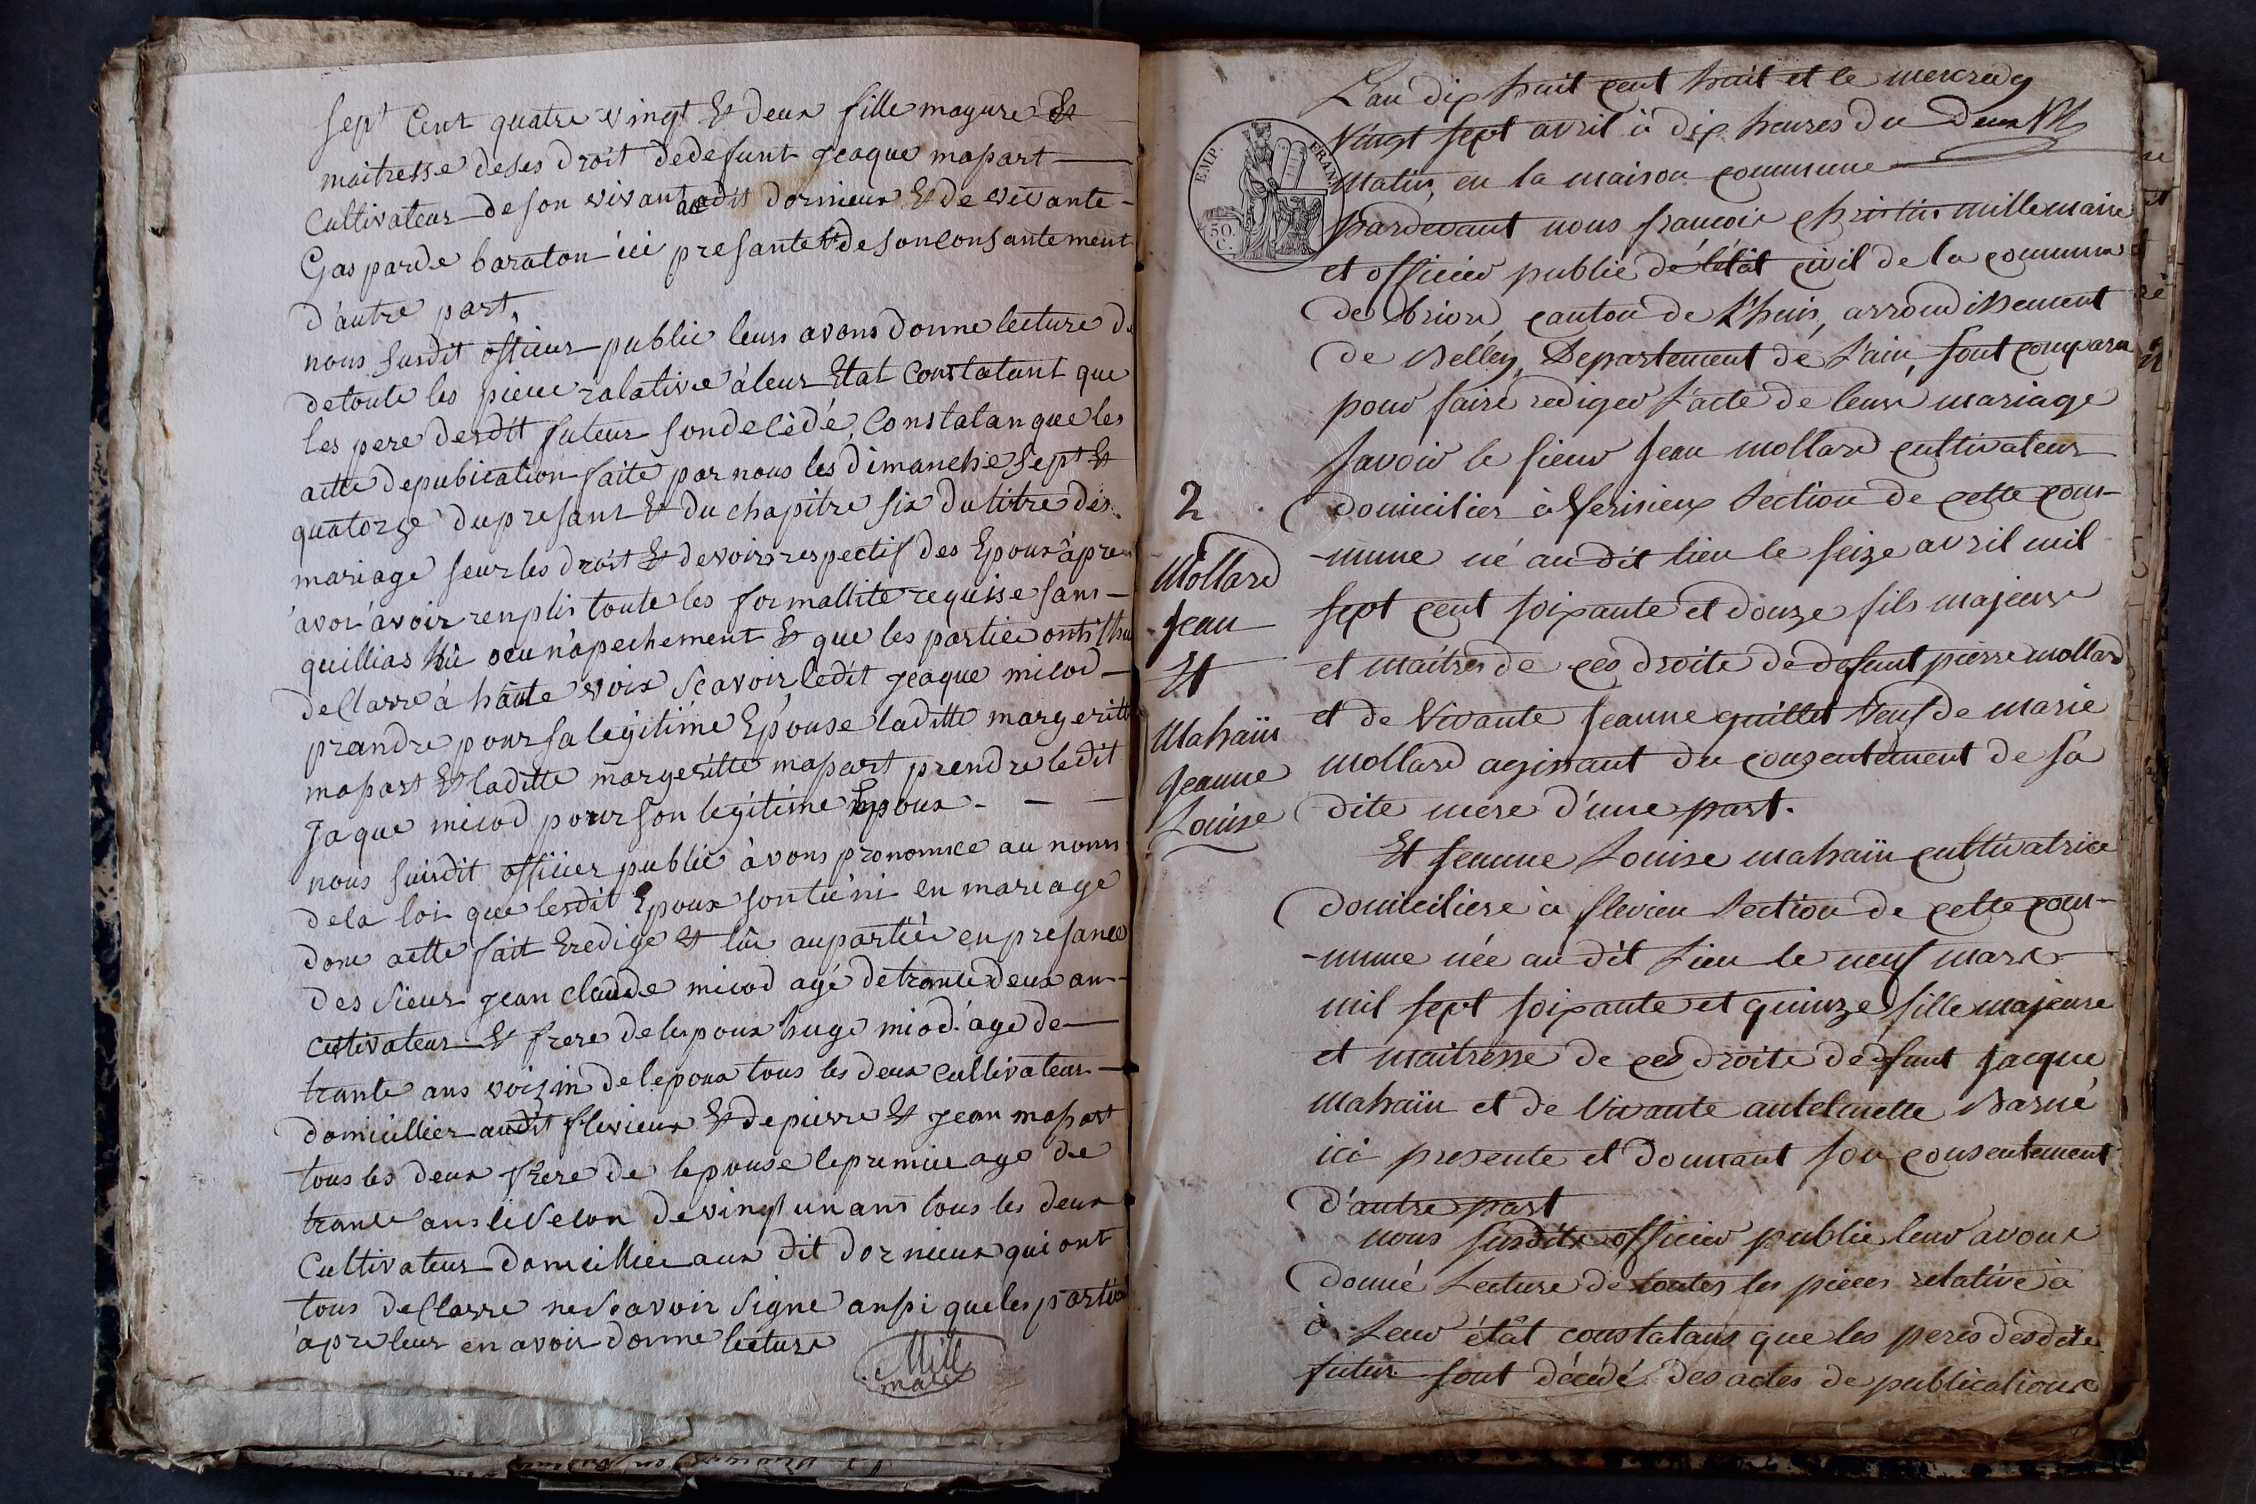 sept Cent quatre vingt & deux fille mayure &
maitresse deses droit dedefunt jeaque mapart
Cultivateur deson vivant audit dornieux & de vivante
Gasparde baraton ici presante & de son consantement
d'autre part,
nous susdit officier public leurs avons donne lecture d
detoute les piece ralative à leur Etat Constatant que
les pere desdit futeur son decèdé, Constatan que les
actte depubication faite par nous les dimanche sept &
quatorze du presant & du chapitre six du titre des
mariage seur les droit & devoirs respectif des Epoux âpre
avoi avoir renplis toute les formallite requise sans
quillias hû ocu n'apechement & que les partie onts
deClarre à hâute voix Scavoir ledit jeaque miood
prendre pour sa legitime Epouse laditte margeritte
mapart & laditte margeritte mapart prendre ledit
Jaque miood pour son legitime Epoux - - -
nous suisdit officier public àvons pronomce au nom
dela loi que lesdit Epoux son tuni en mariage
donc actte fait Eredige & lûe au partiée en presance
des Sieur jean claude miood agé de trante deux an
cultivateur & frere de lepoux huge miod âge de
trante ans voizin de lepoux tous les deux cultivateur
domicillier audit flevieux & de pierre & jean mapart
tous les deux frere de lepouse le premie age de
trante ans le Secon de vingt un ans tous les deux
Cultivateur domicillie aux dit dornieux qui ont
tous deClarre ne Scavoir Signe ansi que les partie
apre leur en avoir donne lecture
Mille
maire
L'an dix huit cent huit et le mercredy
Vingt sept avril à dix heures du
Matin, en la maison commune
pardevant nous francois christin mille maire
et officier public de l'état civil de la commune
de briord, canton de l'huis, arrondissement
de Belley, Departement de L'ain, sont comparu
pour faire rediger L'acte de leur mariage
Savoir le sieur Jean mollard cultivateur
2
domicilier à Verisieux Section de cette com-
-mune né au dit lieu le seize avril mil
Mollard
Jean
Et
Mahaïn
Jeanne
Louise
sept cent soixante et douze fils majeur
et maitre de ces droits de defunt pierre mollard
et de Vivante Jeanne quillet Veuf de marie
mollard agissant du consentement de sa
dite mere d'une part.
Et Jeanne Louise mahaïn cultivatrice
domiciliere à flevieu Section de cette com-
-mune née au dit Lieu le neuf mars
mil sept soixante et quinze fille majeure
et maitresse de ces droits defunt Jacque
mahaïn et de Vivante antelmette Barné
ici presente et donnant son consentement
d'autre part
nous susdits officier public leur avons
donné Lecture de toutes les pieces relative à
à Leur état constatans que les peres desdits
futur sont décédé des actes de publications
EMP. FRAN.
50.
C.